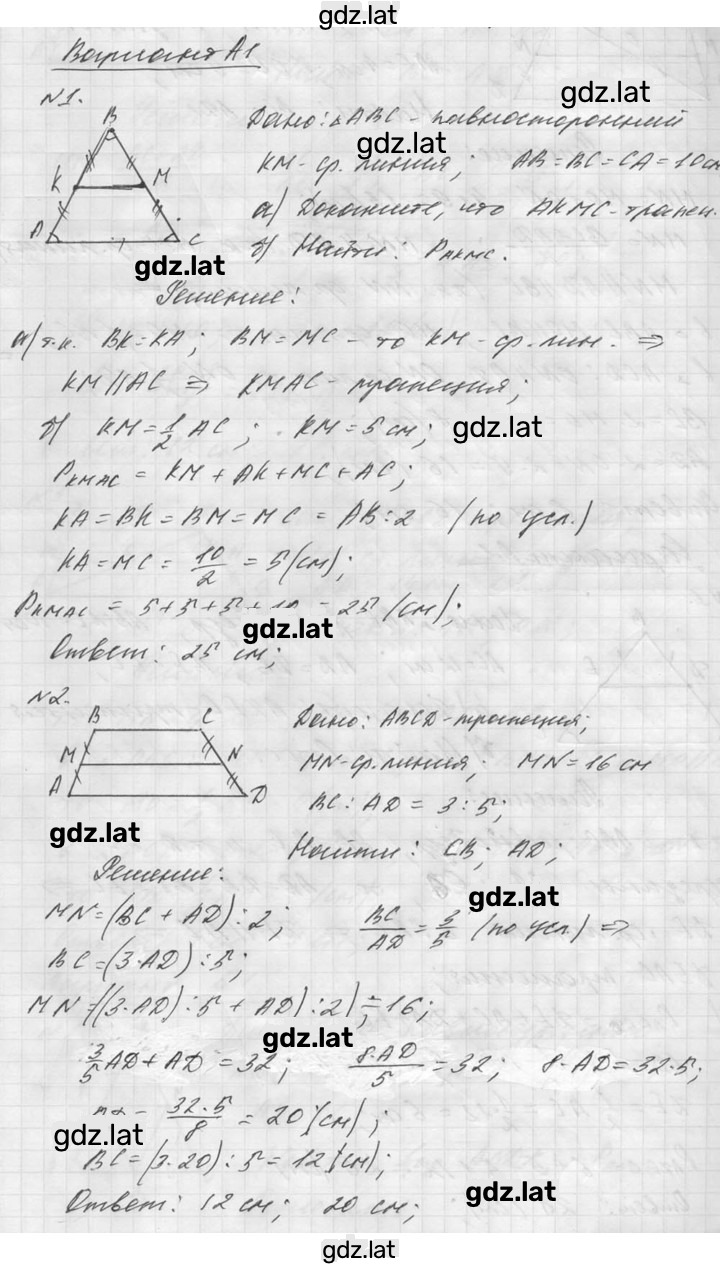 gdz.lat
Вариант А1
gdz.lat
№1.
B
Дано: △ABC - равносторонний
gdz.lat
K M
KM - ср. линия; AB = BC = CA = 10 см
A C
а) Докажите, что AKMC - трапец.
б) Найти: P_AKMC.
gdz.lat
Решение:
а) т.к. BK = KA; BM = MC - то KM - ср. лин. ⇒
KM || AC ⇒ KMAC - трапеция;
б) KM = 1/2 AC; KM = 5 см;
gdz.lat
P_KMAC = KM + AK + MC + AC;
KA = BK = BM = MC = AB : 2 (по усл.)
KA = MC = 10/2 = 5 (см);
P_KMAC = 5 + 5 + 5 + 10 = 25 (см);
gdz.lat
Ответ: 25 см;
№2.
B C
Дано: ABCD - трапеция;
M N
MN - ср. линия; MN = 16 см
A D
BC : AD = 3 : 5;
gdz.lat
Найти: CB; AD;
Решение:
gdz.lat
MN = (BC + AD) : 2; BC/AD = 3/5 (по усл.) ⇒
BC = (3·AD) : 5;
MN = ((3·AD) : 5 + AD) : 2) = 16;
gdz.lat
3/5 AD + AD = 32; 8·AD/5 = 32; 8·AD = 32·5;
= 32·5/8 = 20 (см);
gdz.lat
BC = (3·20) : 5 = 12 (см);
gdz.lat
Ответ: 12 см; 20 см;
gdz.lat